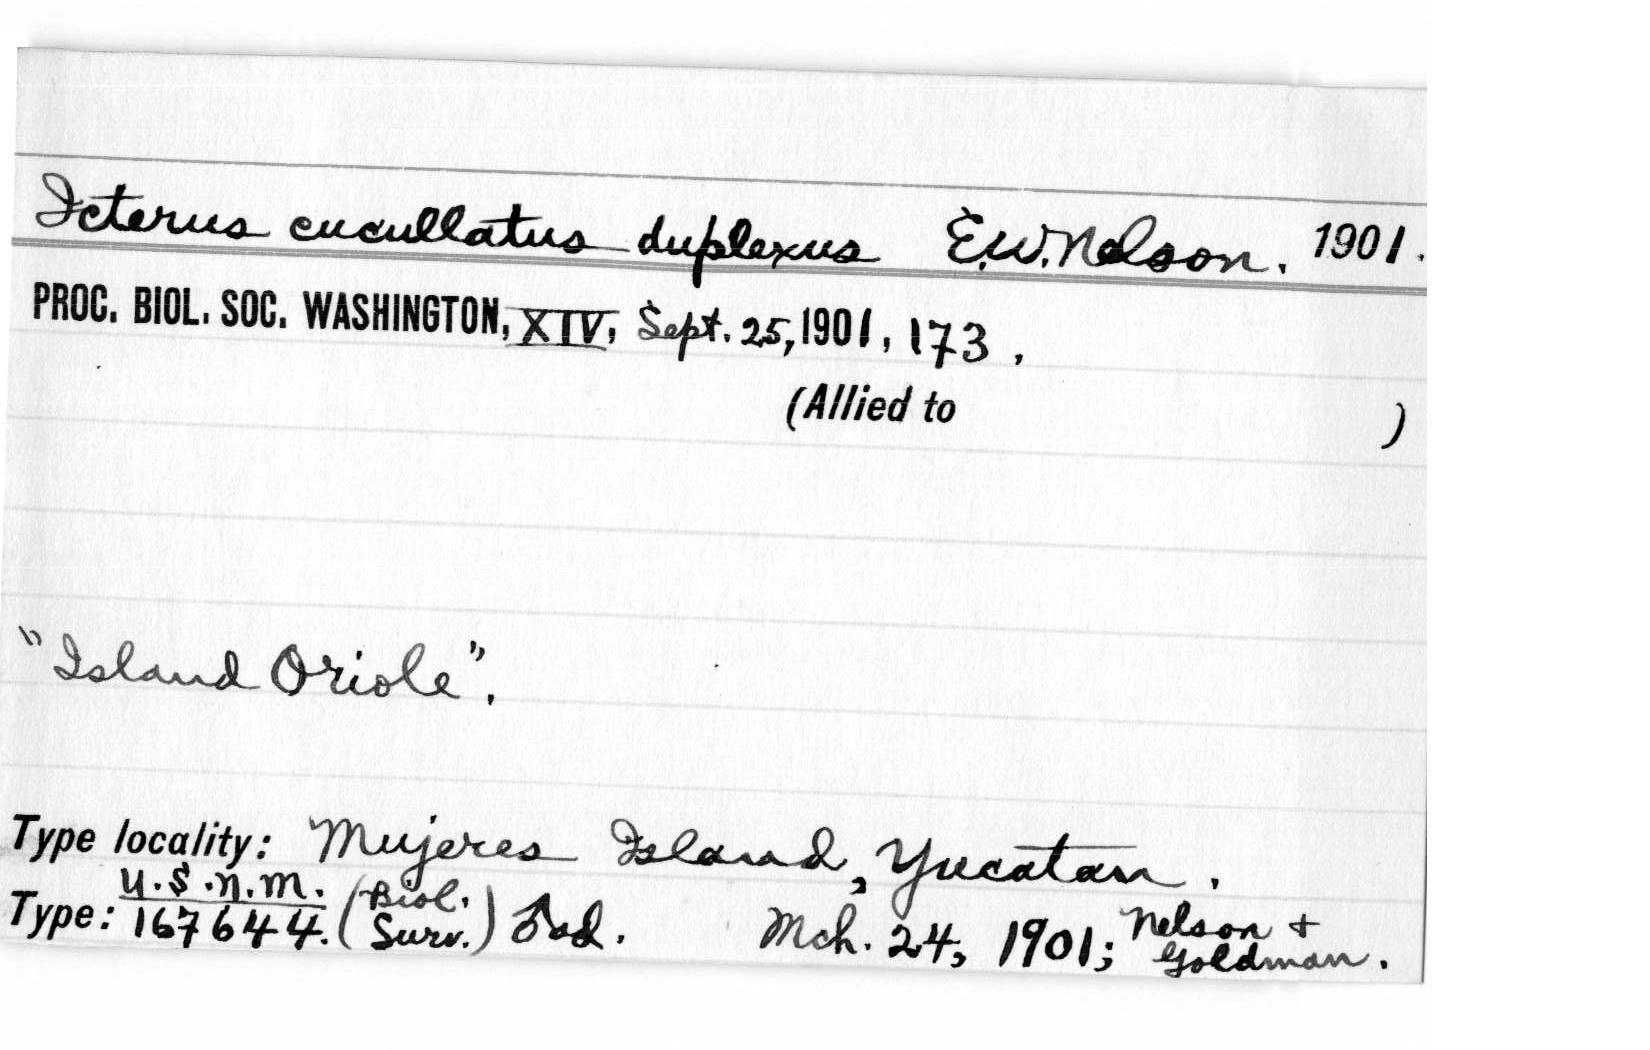 Icterus cucullatus duplexus E.W. Nelson. 1901.
PROC. BIOL. SOC. WASHINGTON, XIV, Sept. 25, 1901, 173.
(Allied to )
"Island Oriole".
Type locality: Mujeres Island, Yucatan.
Type: U.S.N.M. 167644. (Biol. Surv.) ♂ ad. Mch. 24, 1901; Nelson + Goldman.